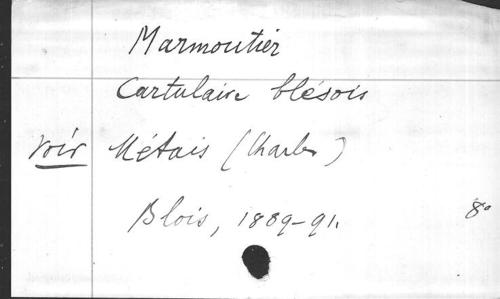 Marmoutier
Cartulaire blésois
voir Métais (Charles)
Blois, 1889-91. 8°